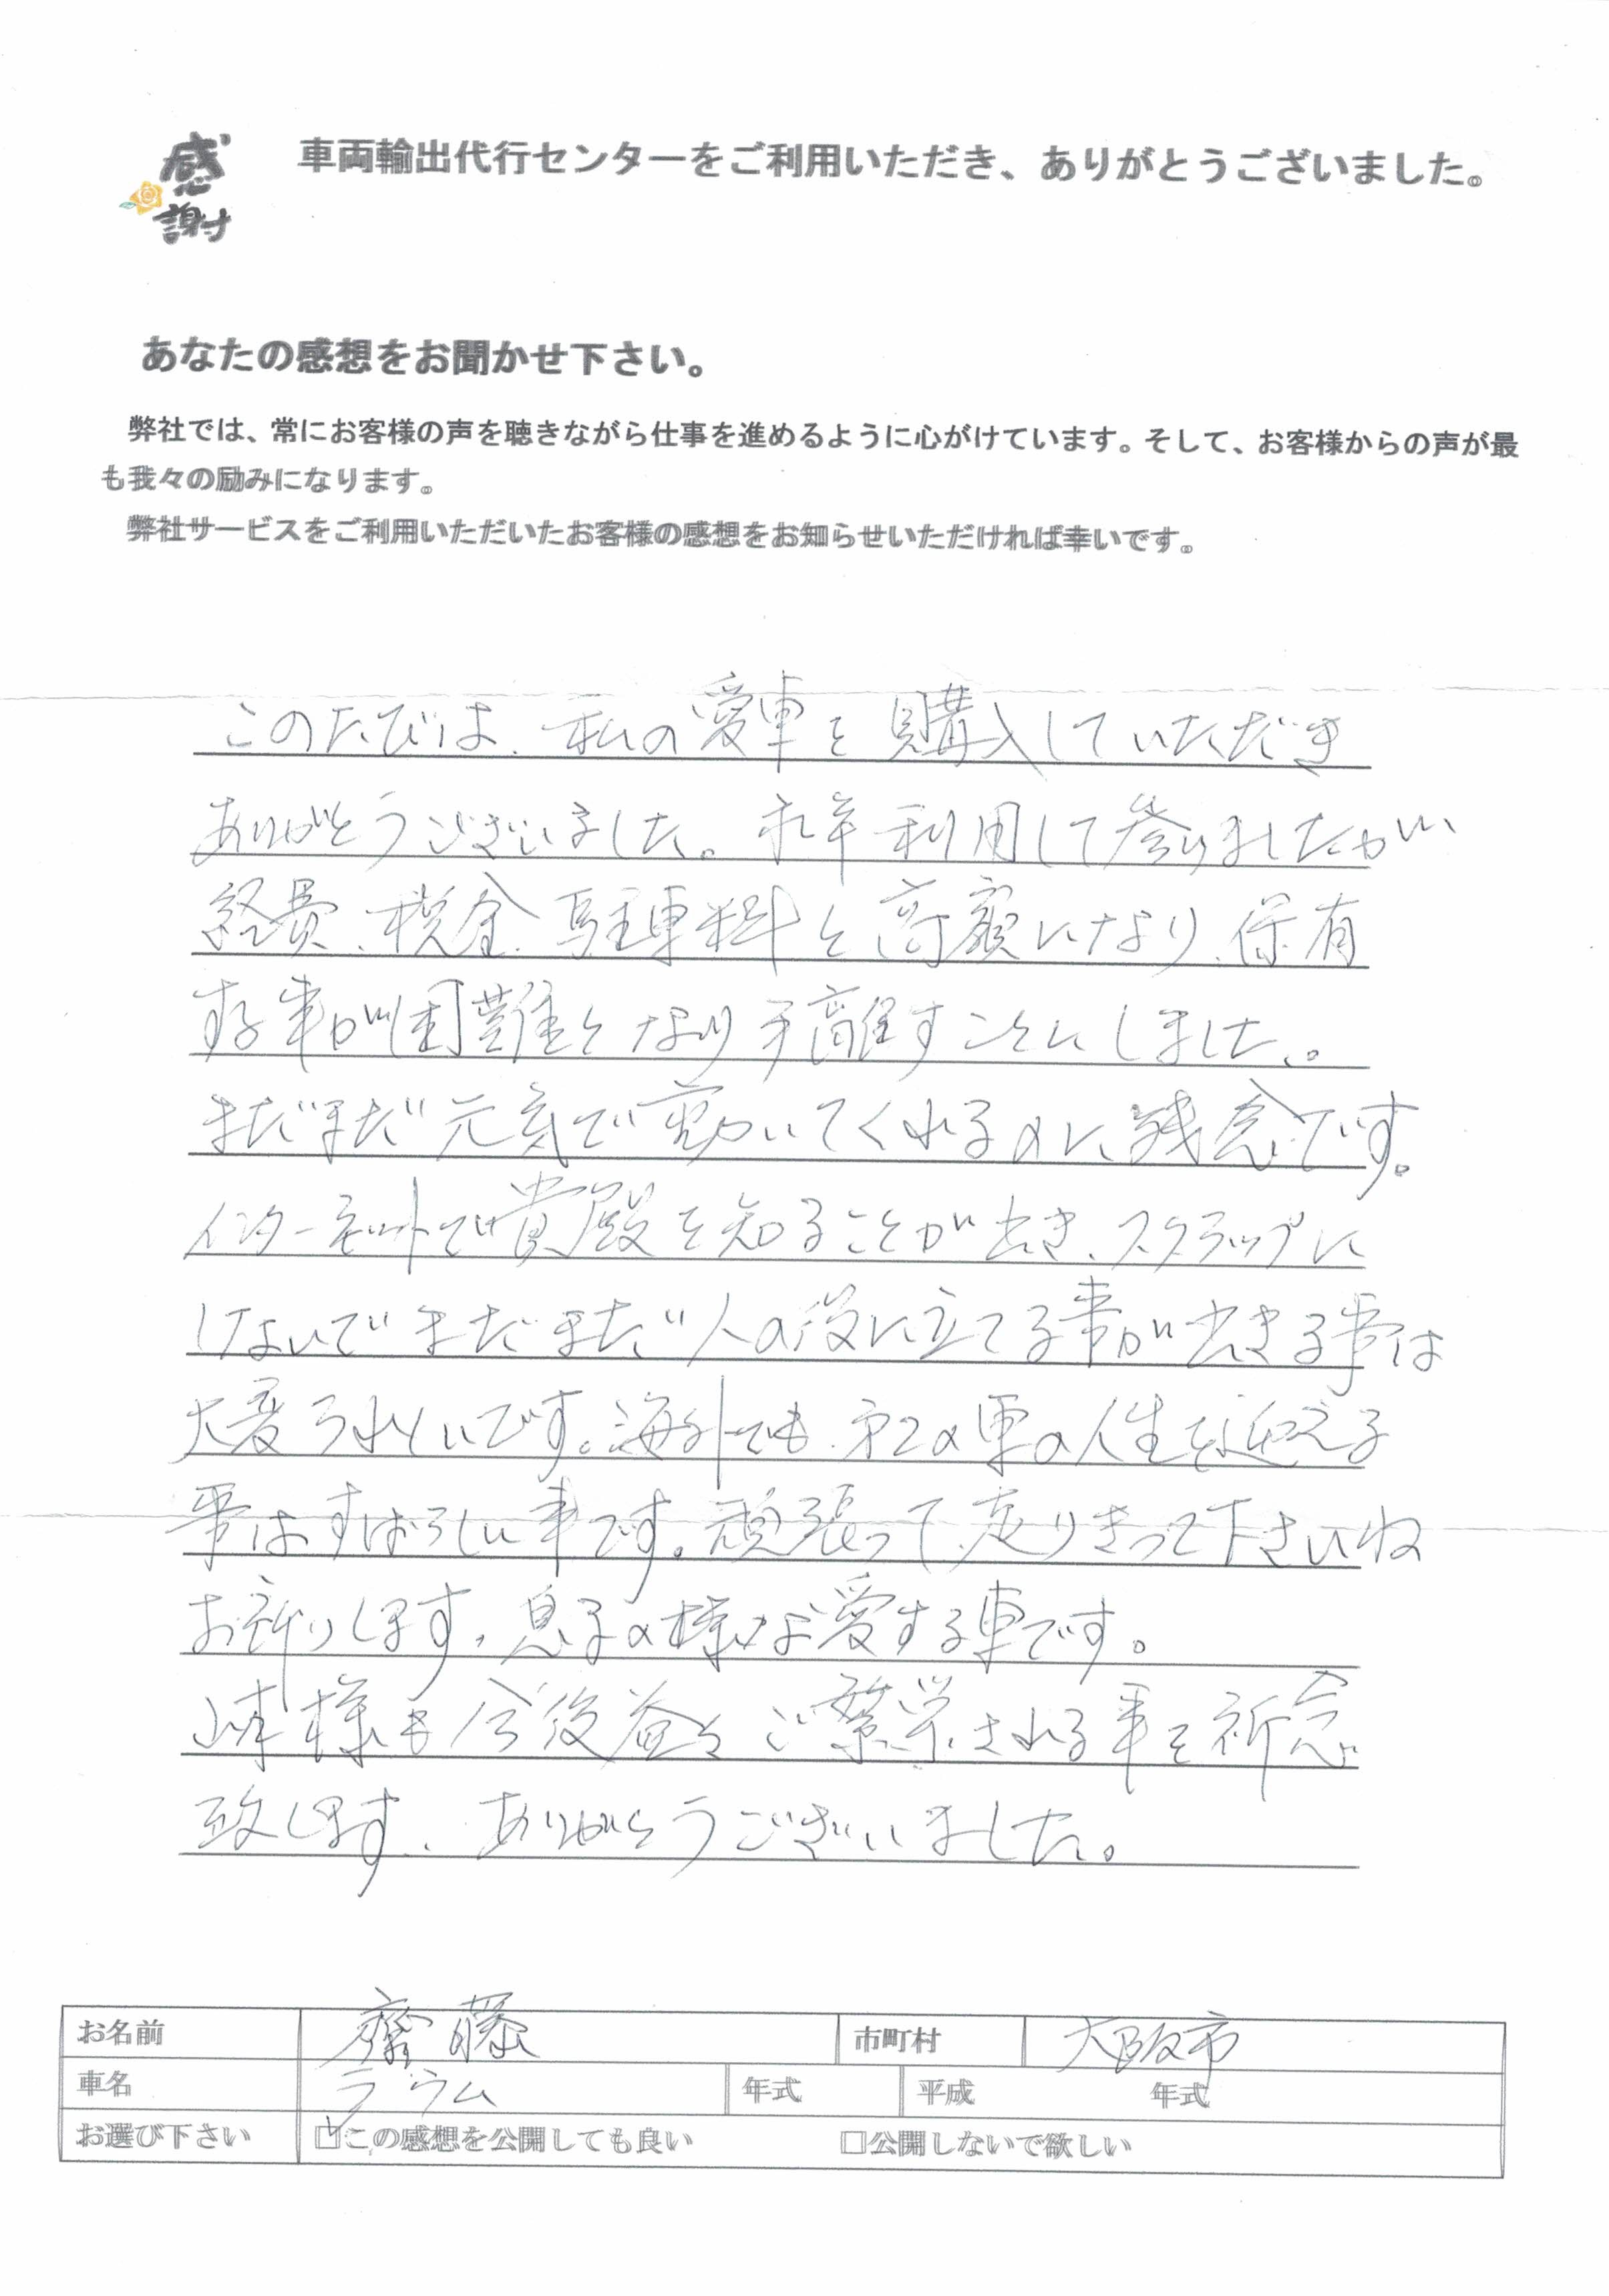 感謝
車両輸出代行センターをご利用いただき、ありがとうございました。
あなたの感想をお聞かせ下さい。
弊社では、常にお客様の声を聴きながら仕事を進めるように心がけています。そして、お客様からの声が最
も我々の励みになります。
弊社サービスをご利用いただいたお客様の感想をお知らせいただければ幸いです。
このたびは、私の愛車を購入していただき
ありがとうございました。永年利用して参りましたが
経費、税金、駐車料と高額になり、保有
する事が困難となり手離すことにしました。
まだまだ元気で動いてくれるのに残念です。
インターネットで貴殿を知ることが出き、スクラップに
しないでまだまだ人の役に立てる事が出きる事は
大変うれしいです。海外でも、第2の車の人生を迎える
事はすばらしい事です。頑張って、走りきって下さいね
お祈りします。息子の様な愛する車です。
様も今後益々ご繁栄される事を祈念
致します。ありがとうございました。
お名前 齋藤 市町村 大阪市
車名 ラウム 年式 平成 年式
お選び下さい ☑この感想を公開しても良い □公開しないで欲しい